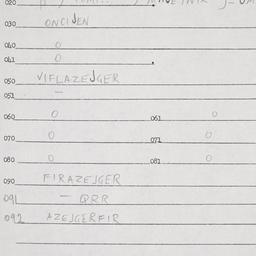 020
030 ONCIJEN
040 O
041 O
050 VIFLAZEJGER
051 –
060 O 061 O
070 O 071 O
080 O 081 O
090 FIRAZEJGER
091 – QRR
092 AZEJGERFIR